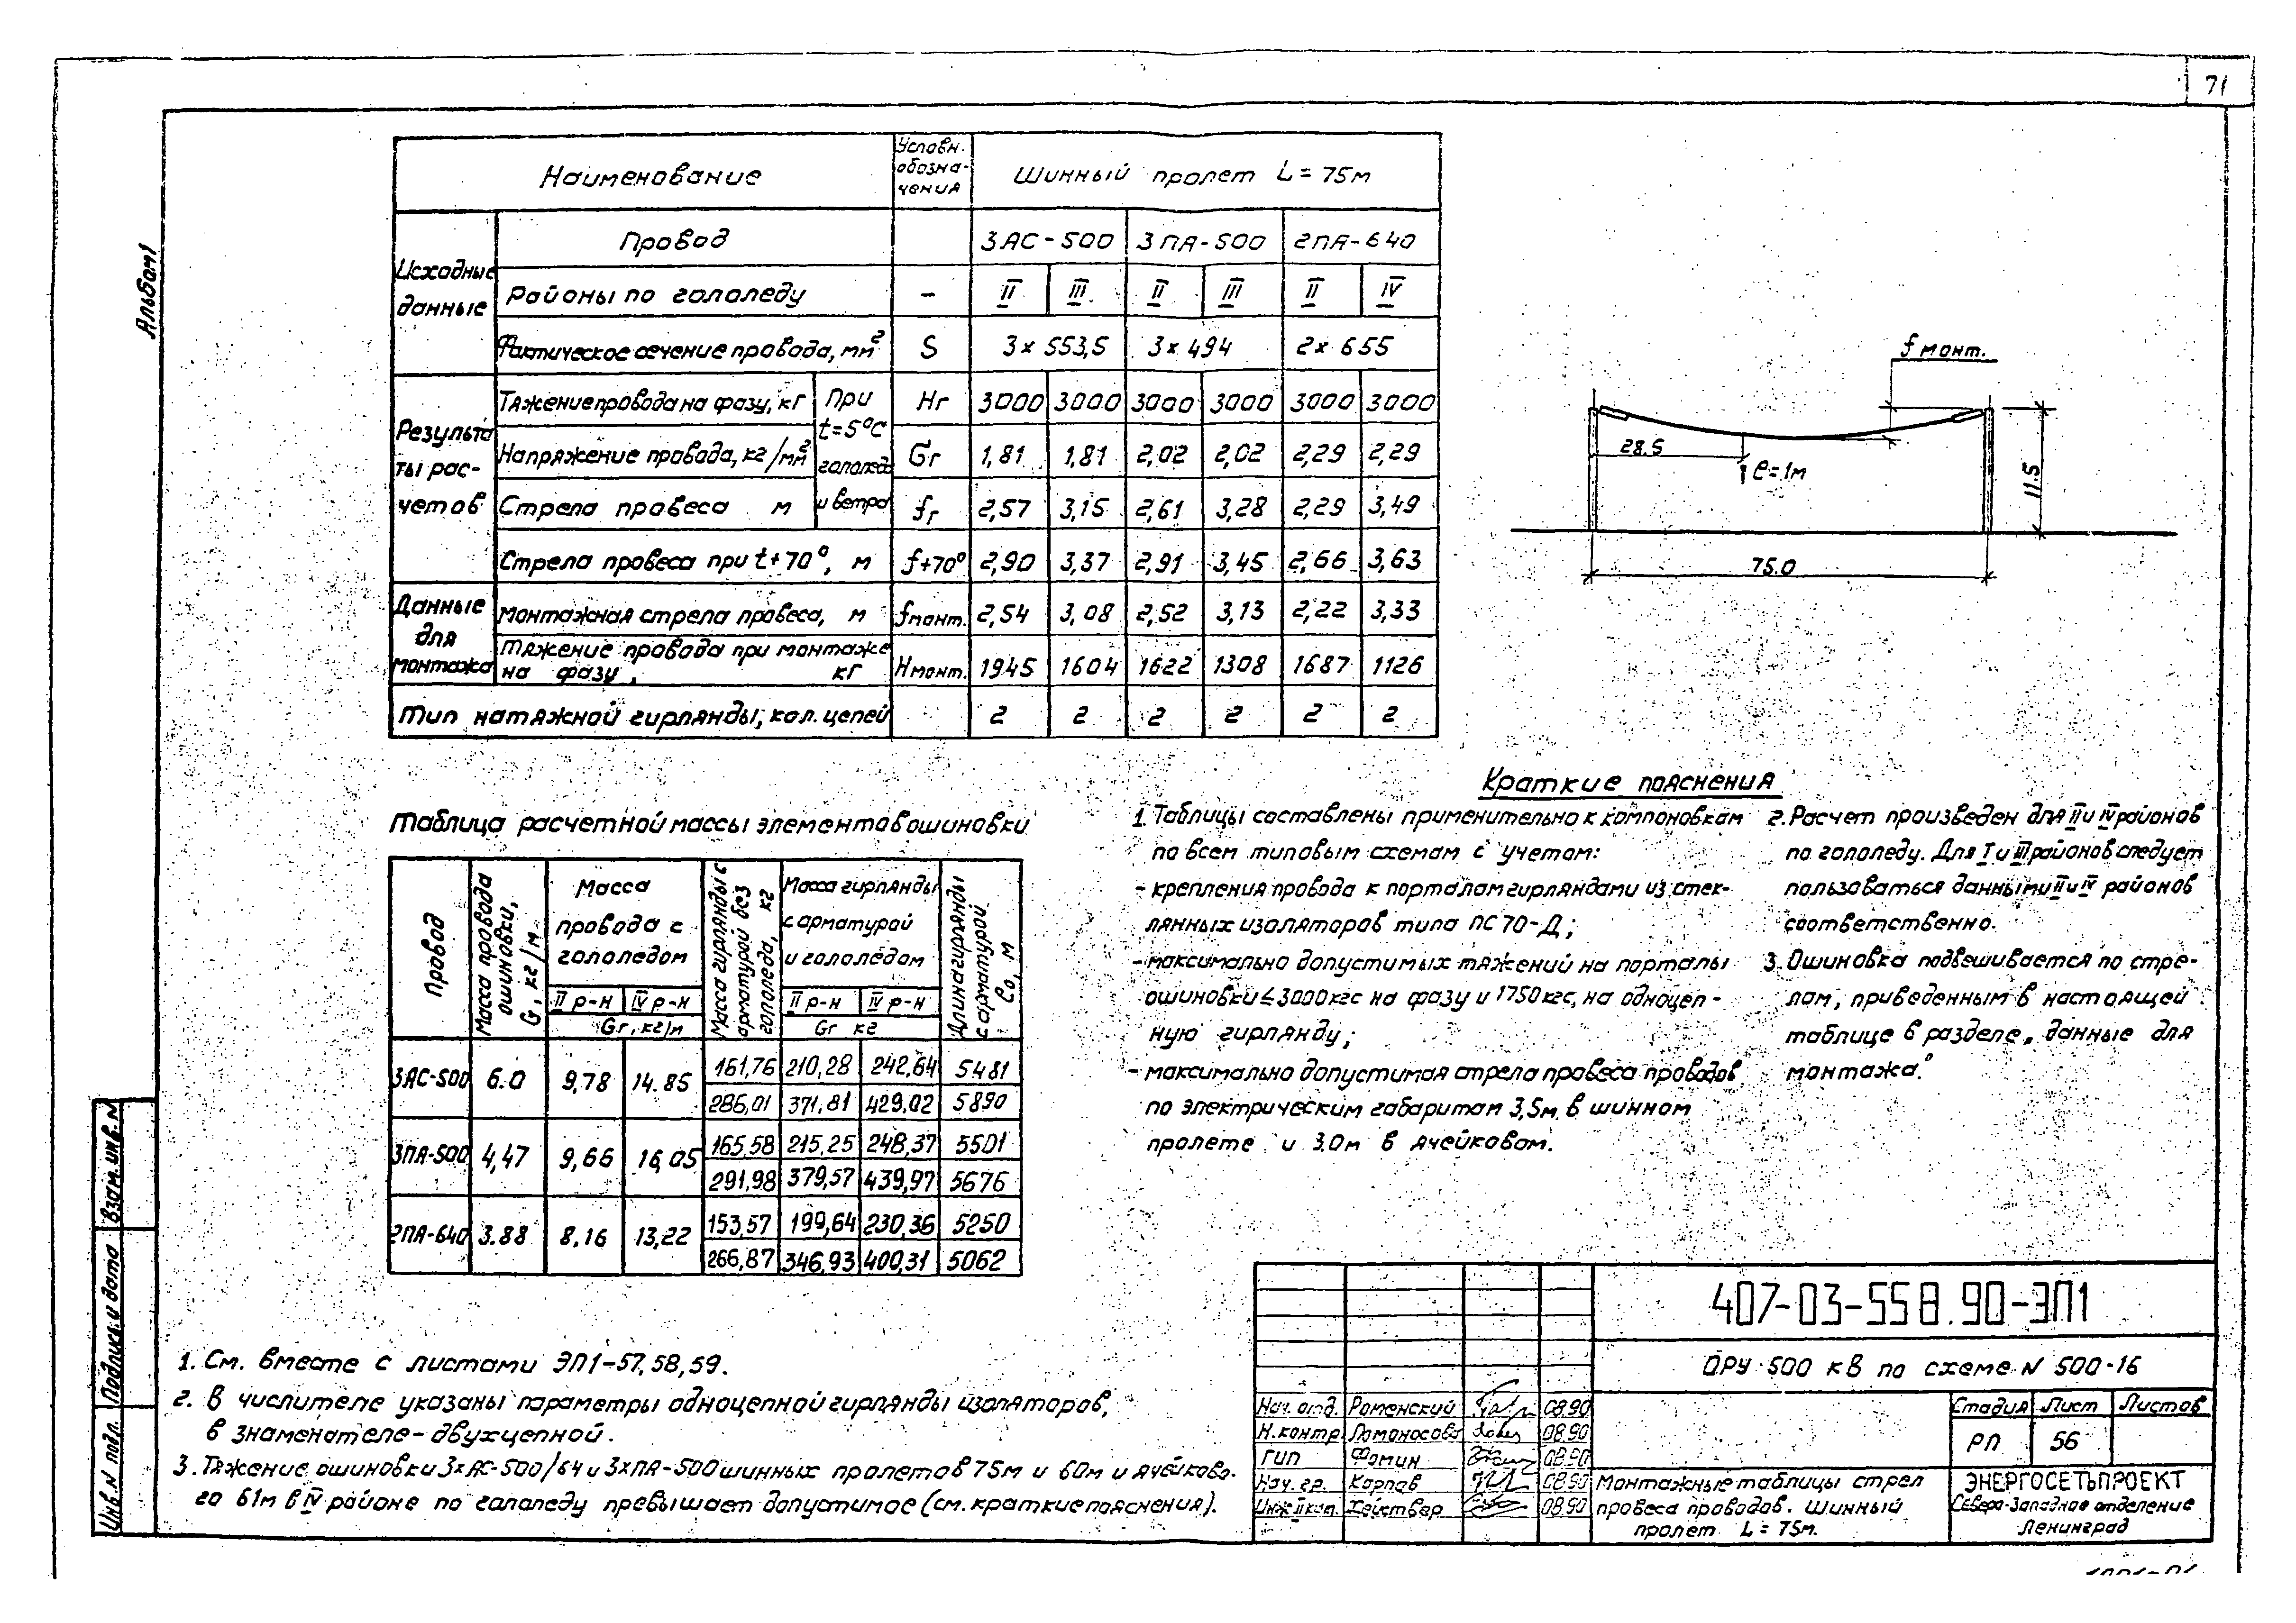 71
Альбом 1
Наименование
Условн. обозна-чения
Шинный пролет L = 75м
Исходные данные
Провод
3АС-500 3ПА-500 2ПА-640
Районы по гололеду – II III II III II IV
Фактическое сечение провода, мм² S 3×553,5 3×494 2×655
Результаты рас-четов
Тяжение провода на фазу, кг При t=5°С гололеде и ветра Нг 3000 3000 3000 3000 3000 3000
Напряжение провода, кг/мм² Gг 1,81 1,81 2,02 2,02 2,29 2,29
Стрела провеса м fг 2,57 3,15 2,61 3,28 2,29 3,49
Стрела провеса при t+70°, м f+70° 2,90 3,37 2,91 3,45 2,66 3,63
Данные для монтажа
Монтажная стрела провеса, м fмонт. 2,54 3,08 2,52 3,13 2,22 3,33
Тяжение провода при монтаже на фазу, кг Нмонт. 1945 1604 1622 1308 1687 1126
Тип натяжной гирлянды, кол. цепей 2 2 2 2 2 2
f монт.
28.5
l=1м
11.5
75.0
Таблица расчетной массы элементов ошиновки
Провод
Масса провода ошиновки, G, кг/м
Масса провода с гололедом
II р-н IV р-н
Gг, кг/м
Масса гирлянды с арматурой без гололеда, кг
Масса гирлянды с арматурой и гололедом
II р-н IV р-н
Gг кг
Длина гирлянды с арматурой ℓо, м
3АС-500 6.0 9,78 14.85 161,76 210,28 242,64 5481
286,01 371,81 429,02 5890
3ПА-500 4,47 9,66 16,05 165,58 215,25 248,37 5501
291,98 379,57 439,97 5676
2ПА-640 3.88 8.16 13,22 153,57 199,64 230,36 5250
266,87 346,93 400,31 5062
Краткие пояснения
1. Таблицы составлены применительно к компоновкам
по всем типовым схемам с учетом:
- крепления провода к порталам гирляндами из стек-
лянных изоляторов типа ПС70-Д;
- максимально допустимых тяжений на порталы
ошиновки ≤ 3000кгс на фазу и 1750кгс, на одноцеп-
ную гирлянду;
- максимально допустимая стрела провеса проводов
по электрическим габаритам 3,5м в шинном
пролете и 3.0м в ячейковом.
2. Расчет произведен для II и IV районов
по гололеду. Для I и III районов следует
пользоваться данными II и IV районов
соответственно.
3. Ошиновка подвешивается по стре-
лам, приведенным в настоящей
таблице в разделе „данные для
монтажа".
1. См. вместе с листами ЭП1-57,58,59.
2. В числителе указаны параметры одноцепной гирлянды изоляторов,
в знаменателе – двухцепной.
3. Тяжение ошиновки 3×АС-500/64 и 3×ПА-500 шинных пролетов 75м и 60м и ячейково-
го 61м в IV районе по гололеду превышает допустимое (см. краткие пояснения).
Взам. инв. N
Подпись и дата
Инв. N подл.
407-03-558.90-ЭП1
ОРУ 500 кВ по схеме N 500-16
Нач. отд. Роменский 08.90
Н. контр. Ломоносова 08.90
ГИП Фомин 08.90
Нач. гр. Карпов 08.90
Инж. II кат. Хействер 08.90
Стадия Лист Листов
РП 56
Монтажные таблицы стрел
провеса проводов. Шинный
пролет L = 75м.
ЭНЕРГОСЕТЬПРОЕКТ
Северо-Западное отделение
Ленинград